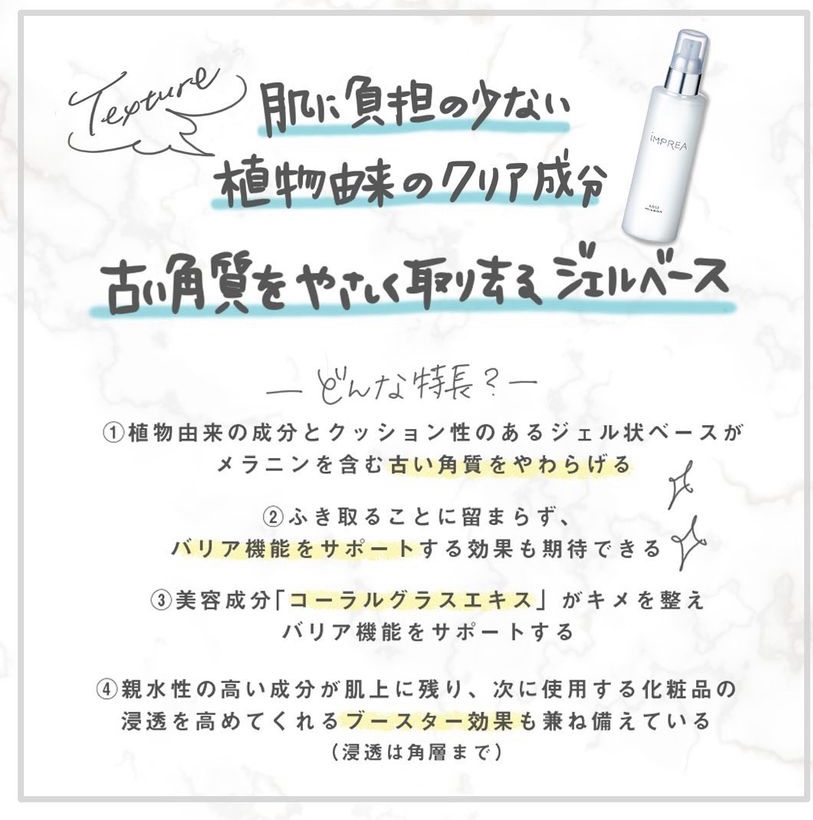 Texture
肌に負担の少ない
植物由来のクリア成分
IMPREA
古い角質をやさしく取り去るジェルベース
― どんな特長？―
①植物由来の成分とクッション性のあるジェル状ベースが
メラニンを含む古い角質をやわらげる
②ふき取ることに留まらず、
バリア機能をサポートする効果も期待できる
③美容成分「コーラルグラスエキス」がキメを整え
バリア機能をサポートする
④親水性の高い成分が肌上に残り、次に使用する化粧品の
浸透を高めてくれるブースター効果も兼ね備えている
（浸透は角層まで）